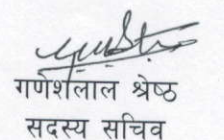 गणेशलाल श्रेष्ठ
सदस्य सचिव